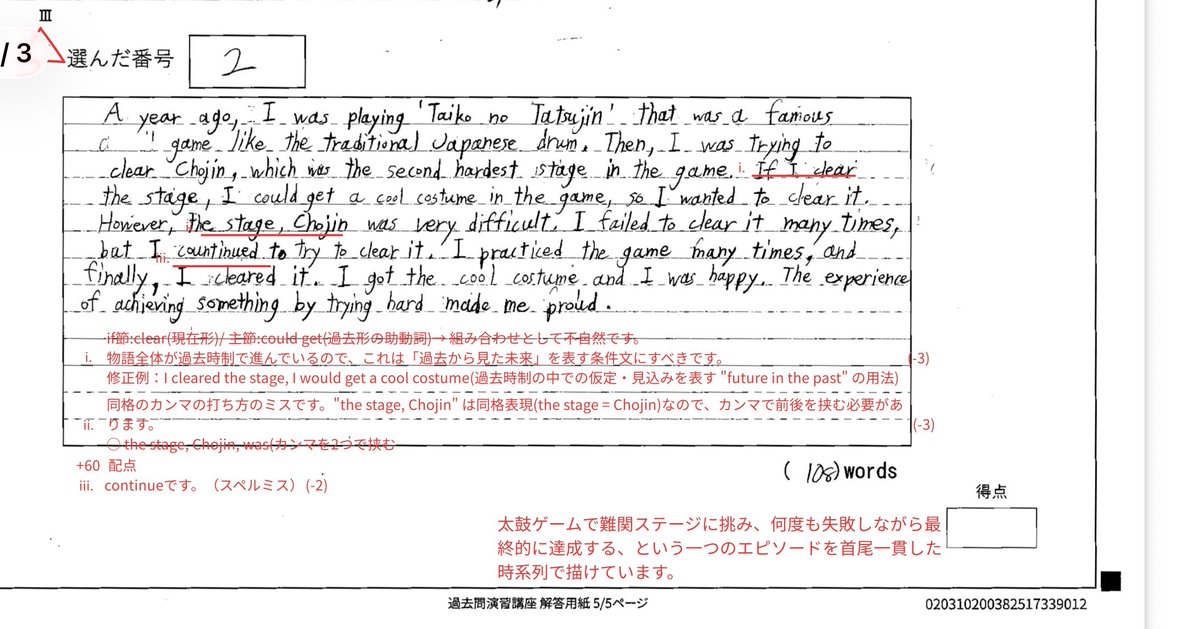 III
/3
選んだ番号
2
A year ago, I was playing 'Taiko no Tatsujin' that was a famous
game like the traditional Japanese drum. Then, I was trying to
clear Chojin, which was the second hardest stage in the game. i. If I clear
the stage, I could get a cool costume in the game, so I wanted to clear it.
However, the stage, Chojin was very difficult. I failed to clear it many times,
but I iii. countinued to try to clear it. I practiced the game many times, and
finally, I cleared it. I got the cool costume and I was happy. The experience
of achieving something by trying hard made me proud.
if節:clear(現在形)/ 主節:could get(過去形の助動詞)→ 組み合わせとして不自然です。
i. 物語全体が過去時制で進んでいるので、これは「過去から見た未来」を表す条件文にすべきです。 (-3)
修正例：I cleared the stage, I would get a cool costume(過去時制の中での仮定・見込みを表す "future in the past" の用法)
同格のカンマの打ち方のミスです。"the stage, Chojin" は同格表現(the stage = Chojin)なので、カンマで前後を挟む必要があ
ii. ります。 (-3)
○ the stage, Chojin, was(カンマを2つで挟む
+60 配点
iii. continueです。（スペルミス）(-2)
(108)words
得点
太鼓ゲームで難関ステージに挑み、何度も失敗しながら最
終的に達成する、という一つのエピソードを首尾一貫した
時系列で描けています。
過去問演習講座 解答用紙 5/5ページ
020310200382517339012